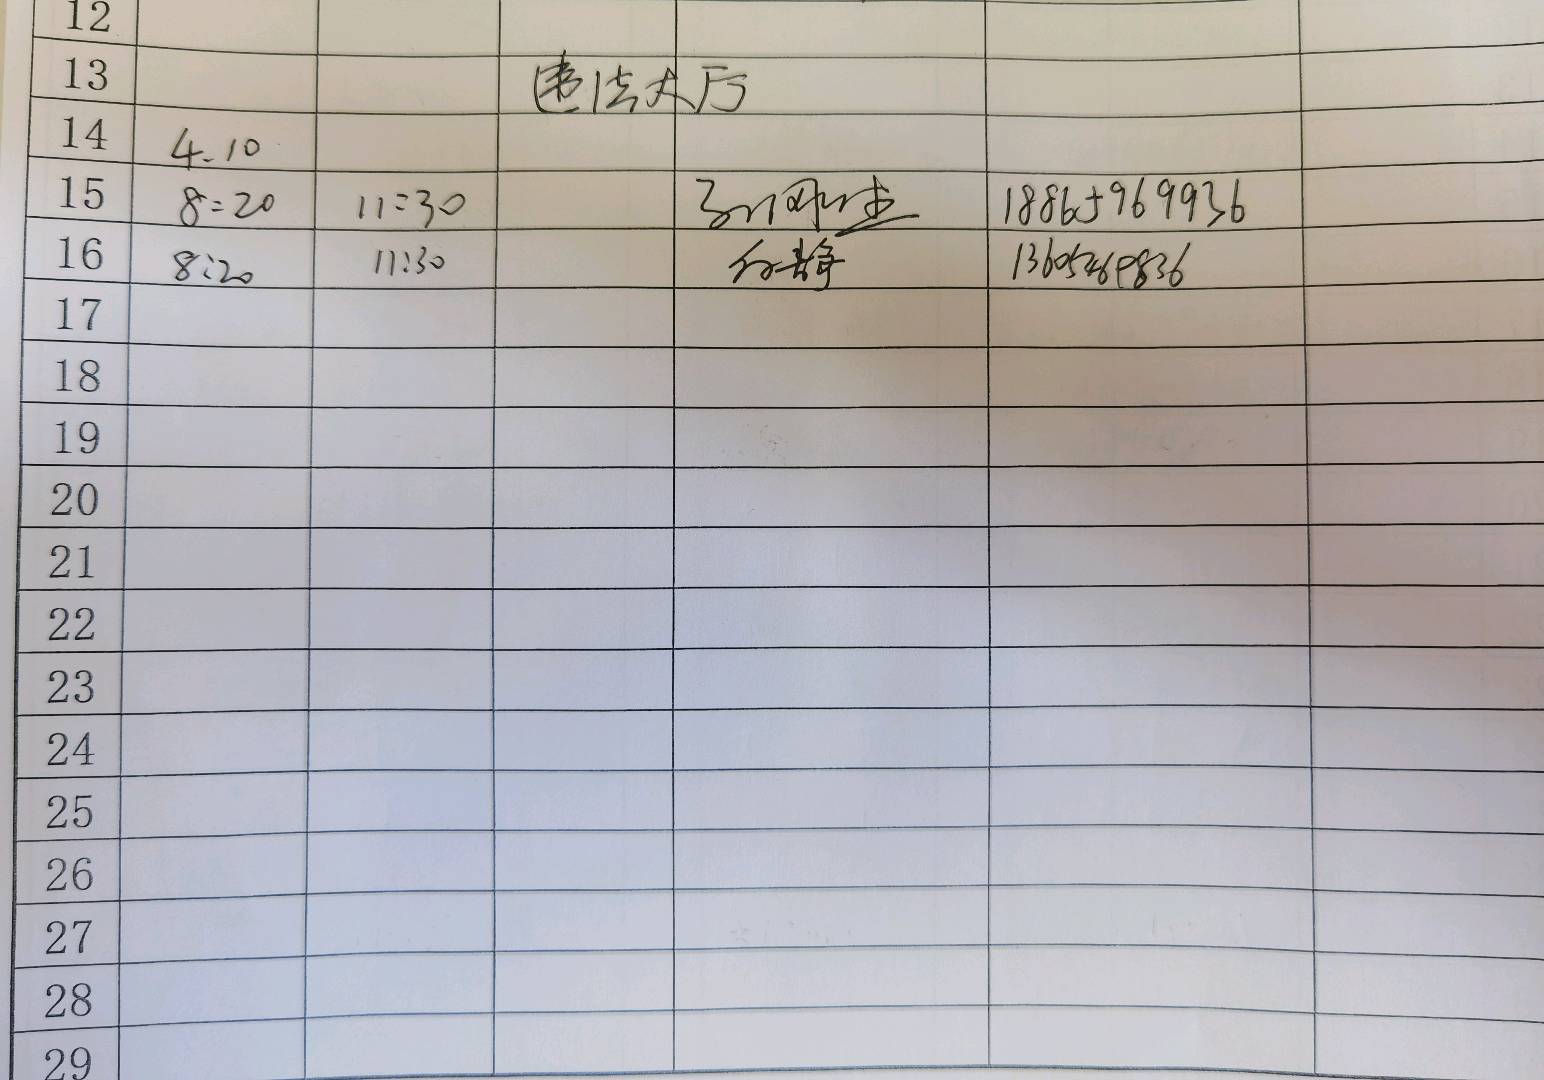 12
13 违法大厅
14 4.10
15 8:20 11:30 18865969936
16 8:20 11:30
17
18
19
20
21
22
23
24
25
26
27
28
29